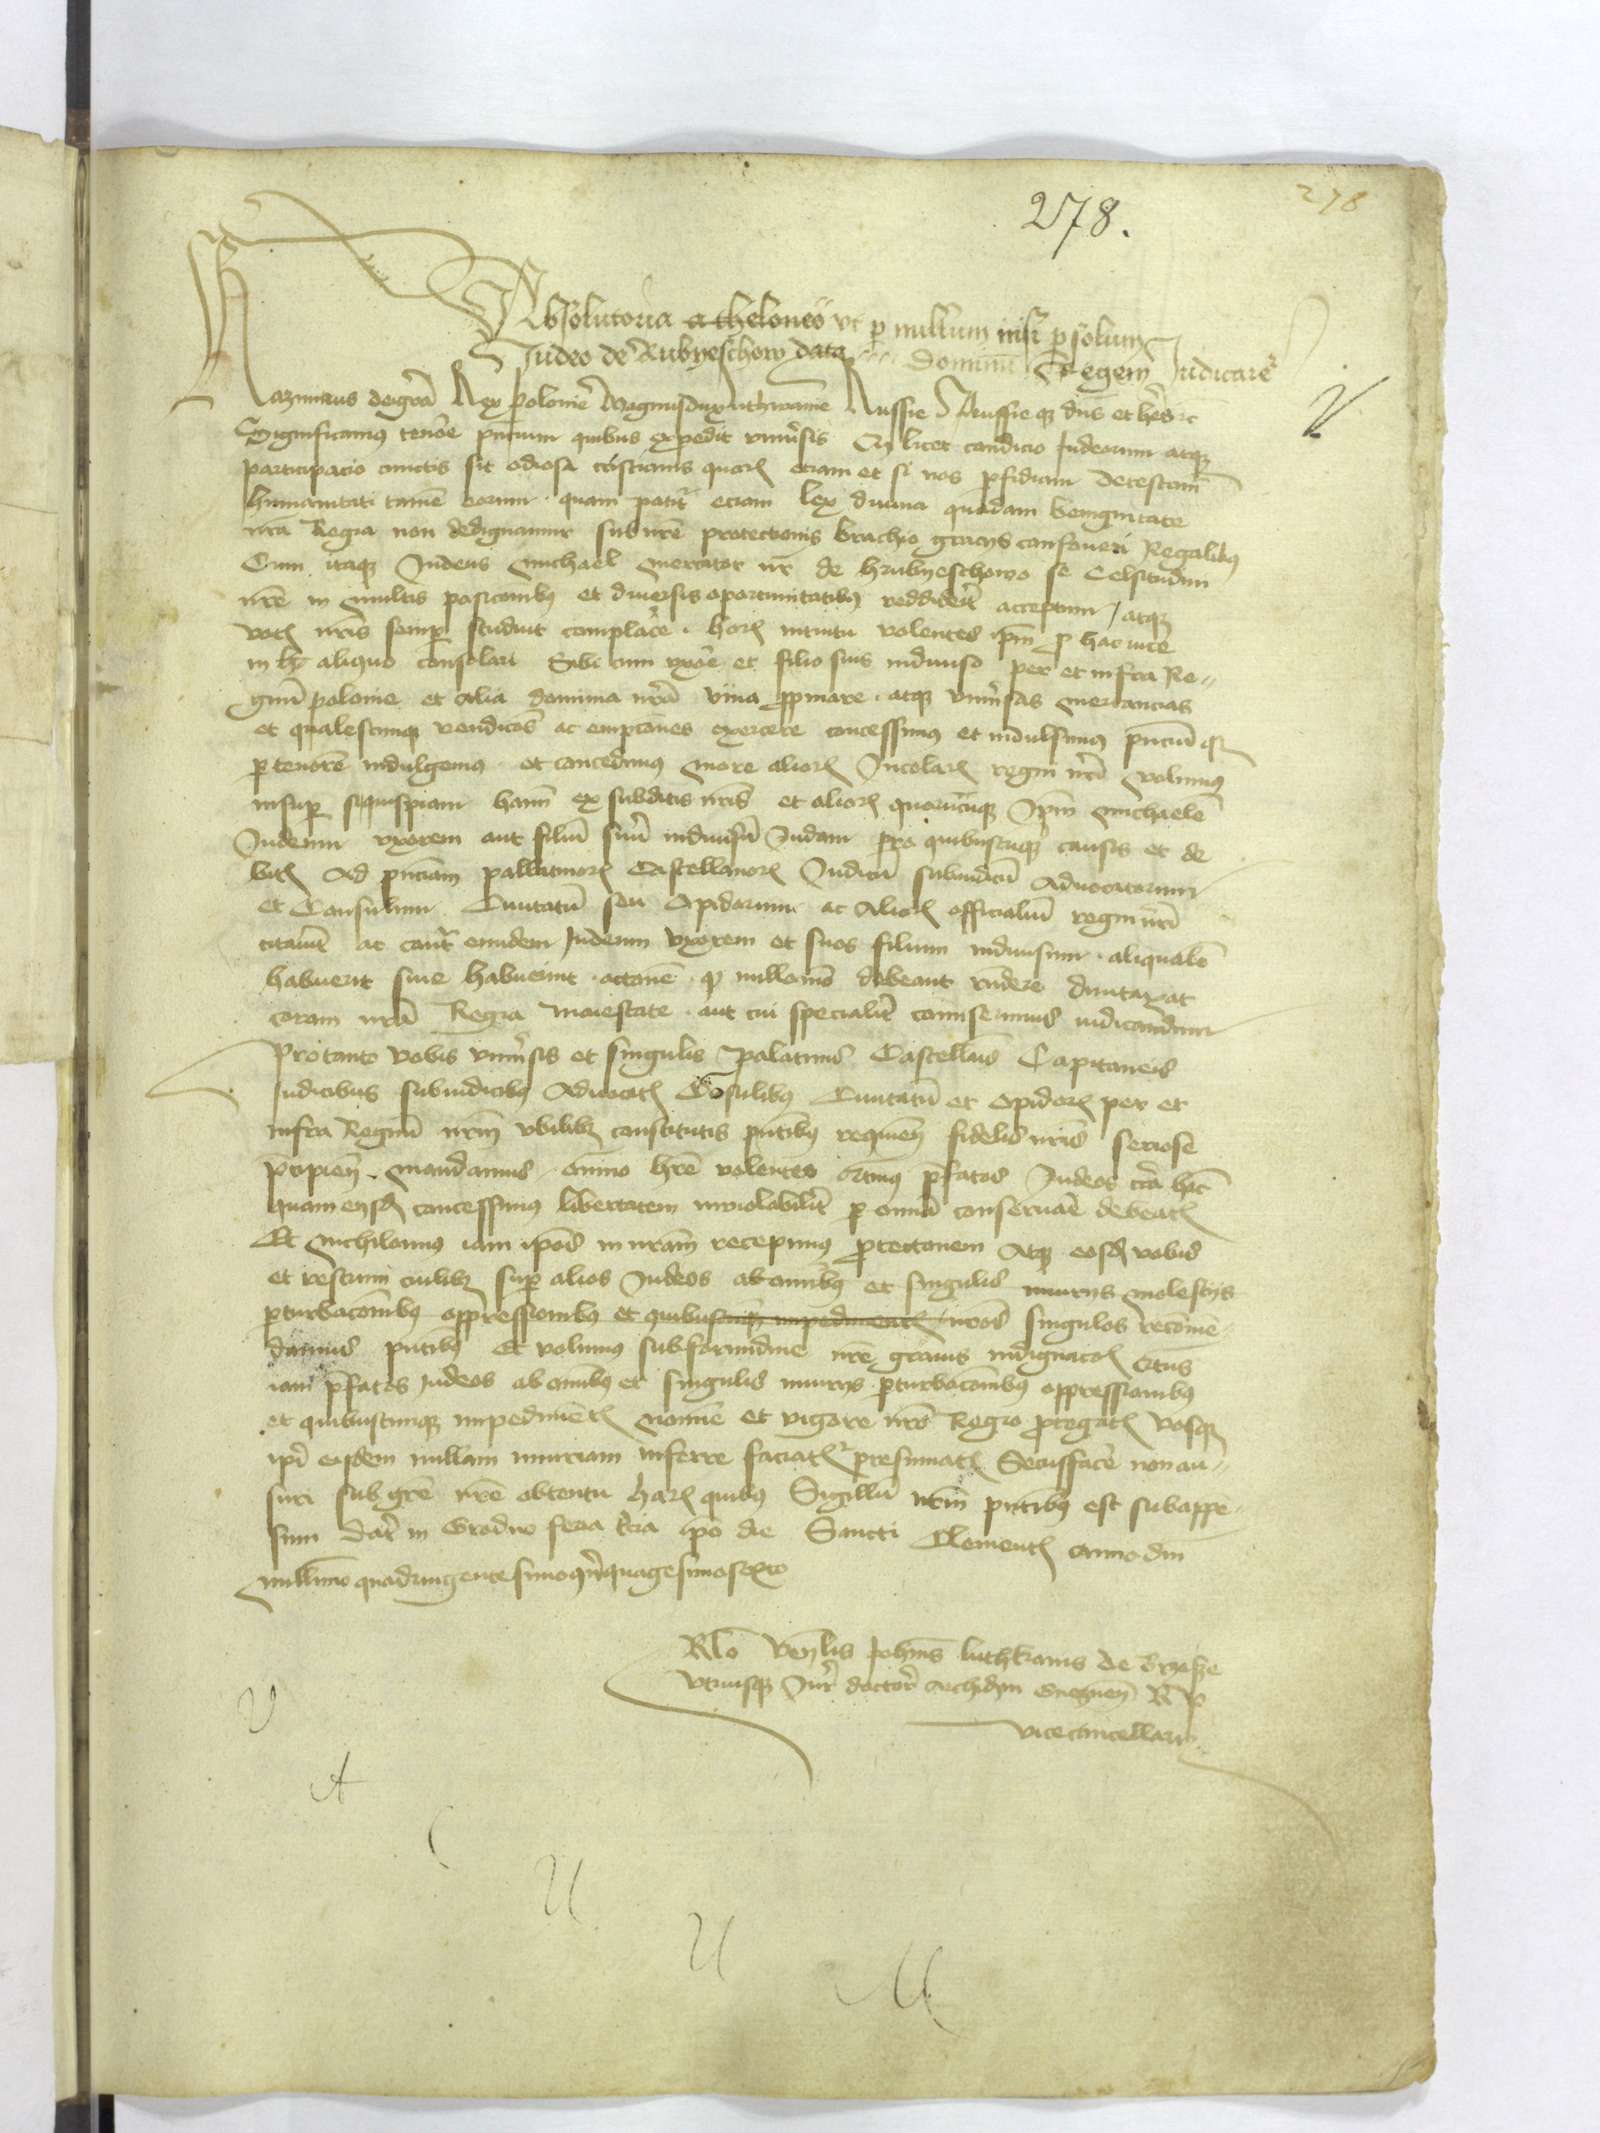 278
278.
Absolutoria a theloneo ut p nullum nisi p solum
Judeo de Rubyeschow data dominu Regem Judicaret
V
Kazimirus dei gra Rex Polonie Magnus dux lithwanie Russie Prussie q dns et heres etc
Significamus tenore pntium quibus expedit universis Q licet condicio Judeorum atq
participacio cunctis sit odiosa cristianis quor etiam et si nos pfidiam detestam
humanitati tame eorum quam patit etiam lex divina quadam benignitate
nra Regia non dedignamur sub nre protectionis brachio graciis confoveri Regalibus
Cum itaq Judeus Michael Mercator nr de hrubyeschowo se Celsitudini
nre in multis posicionibus et diversis oportunitatibus reddiderit acceptum atq
votis nris semp studuit complacere horu intuitu volentes ipm p hac vice
in aliquo consolari Sibi cum uxore et filio suis indiviso per et infra Re
gnu polonie et alia dominia nra vina ppinare atq universas mercancias
et qualescunq vendicoes ac empciones exercere concessimus et indulsimus pntiu q
p tenore indulgemus et concedimus more alior Incolar regni nri volumus
insup siquispiam homin ex subditis nris et alior quorucuq Ipm michaele
Judeum uxorem aut filiu suu indivisu Judam pro quibuscuq causis et de
bitis Ad pnciam pallatinor Castellanor Judicu subiudicu Advocatorum
et Consulum Civitatu seu Opidorum ac Alior officialiu regni nri
citaverit ac contra eundem Judeum uxorem et suos filium indivisum aliquale
habuerit sive habuerint actione q nullomo debeant rndere duntaxat
coram nra Regia maiestate aut cui specialit comiserimus iudicandum
Pro tanto vobis universis et singulis Palatinis Castellanis Capitaneis
Judicibus subiudicibus Advocatis Cosulibus Civitatu et Opidor per et
infra Regnu nrm ubilibet constitutis pntibus requirend fidelib nris seriose
pcipiend mandamus omnino here volentes qtinus pfatos Judeos circa hac
quam eysd concessimus libertatem inviolabilit p omnia conservare debeatis
Et Nichilominus iam ipos in nram recepimus ptectionem Atq eosd vobis
et vestrum cuilibet sup alios Judeos ab omnibus et singulis iniuriis molestiis
pturbacoibus oppressionibus et quibuscunq impedimentis vros singulos recomen
damus pntibus Et volumus sub formidine nre gravis indignacois qtinus
iam pfatos Judeos ab omnibus et singulis iniuriis pturbacoibus oppressionibus
et quibuscunq impedimentis nomine et vigore nro Regio ptegatis vosq
ipi eisdem nullam iniuriam inferre faciatis presumatis Secus facere non au
suri sub gre nre obtentu har quibus Sigillu nrm pntibus est subappe
sum Dat in Grodno feria tercia ipo die Sancti Clementis Anno dni
millesimo quadringentesimo quinquagesimo sexto
Rlo Venlis Johnis luthkonis de Brzesze
utriusq Juris doctoris Archidyni Gneznen R P
vicecancellarii
V
A
C
U
U
M